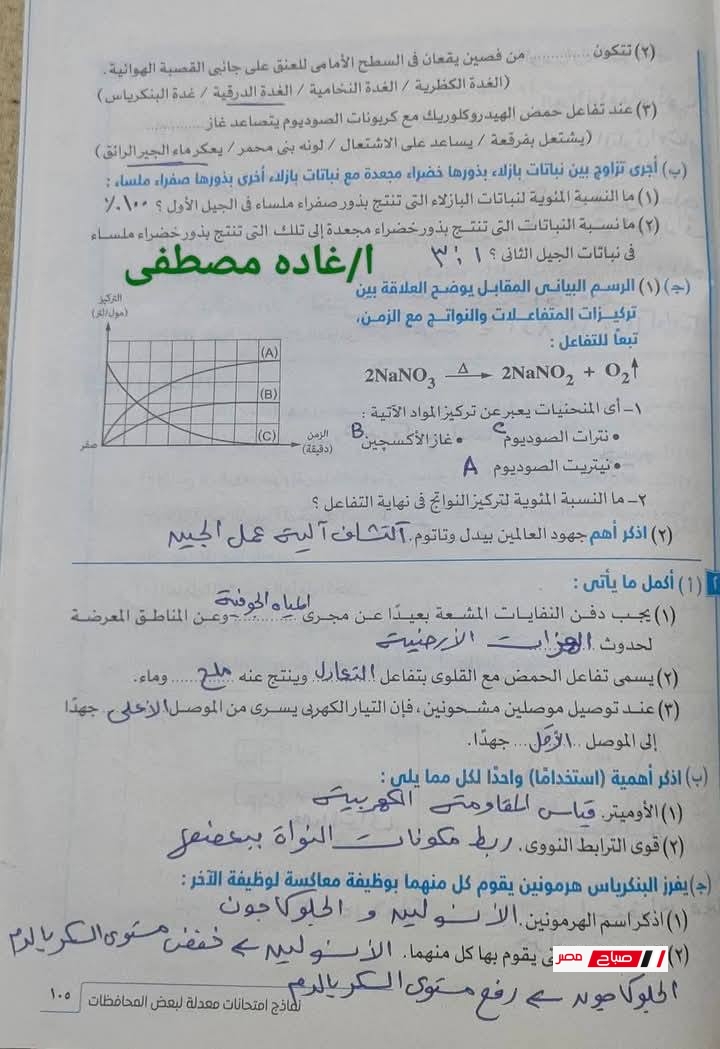 (٢) تتكون ............ من فصين يقعان فى السطح الأمامى للعنق على جانبى القصبة الهوائية.
(الغدة الكظرية / الغدة النخامية / الغدة الدرقية / غدة البنكرياس)
(٣) عند تفاعل حمض الهيدروكلوريك مع كربونات الصوديوم يتصاعد غاز ............
(يشتعل بفرقعة / يساعد على الاشتعال / لونه بنى محمر / يعكر ماء الجير الرائق)
(ب) أجرى تزاوج بين نباتات بازلاء بذورها خضراء مجعدة مع نباتات بازلاء أخرى بذورها صفراء ملساء :
(١) ما النسبة المئوية لنباتات البازلاء التى تنتج بذور صفراء ملساء فى الجيل الأول ؟ ١٠٠٪
(٢) ما نسبة النباتات التى تنتج بذور خضراء مجعدة إلى تلك التى تنتج بذور خضراء ملساء
فى نباتات الجيل الثانى ؟ ٣:١
أ/غاده مصطفى
(ج) (١) الرسم البيانى المقابل يوضح العلاقة بين
تركيزات المتفاعلات والنواتج مع الزمن،
تبعًا للتفاعل :
2NaNO3 Δ→ 2NaNO2 + O2↑
التركيز
(مول/لتر)
(A)
(B)
(C)
صفر
الزمن
(دقيقة)
١- أى المنحنيات يعبر عن تركيز المواد الآتية :
• نترات الصوديوم C • غاز الأكسچين B
• نيتريت الصوديوم A
٢- ما النسبة المئوية لتركيز النواتج فى نهاية التفاعل ؟
(٢) اذكر أهم جهود العالمين بيدل وتاتوم. اكتشاف آلية عمل الجين
٢ (أ) أكمل ما يأتى :
(١) يجب دفن النفايات المشعة بعيدًا عن مجرى المياه الجوفية وعن المناطق المعرضة
لحدوث الهزات الأرضية
(٢) يسمى تفاعل الحمض مع القلوى بتفاعل التعادل وينتج عنه ملح وماء.
(٣) عند توصيل موصلين مشحونين، فإن التيار الكهربى يسرى من الموصل الأعلى جهدًا
إلى الموصل الأقل جهدًا.
(ب) اذكر أهمية (استخدامًا) واحدًا لكل مما يلى :
(١) الأوميتر. قياس المقاومة الكهربية
(٢) قوى الترابط النووى. ربط مكونات النواة ببعضها
(ج) يفرز البنكرياس هرمونين يقوم كل منهما بوظيفة معاكسة لوظيفة الآخر :
(١) اذكر اسم الهرمونين. الأنسولين و الجلوكاجون
(٢) يقوم بها كل منهما. الأنسولين ← خفض مستوى السكر بالدم
الجلوكاجون ← رفع مستوى السكر بالدم
صباح مصر
نماذج امتحانات معدلة لبعض المحافظات ١٠٥